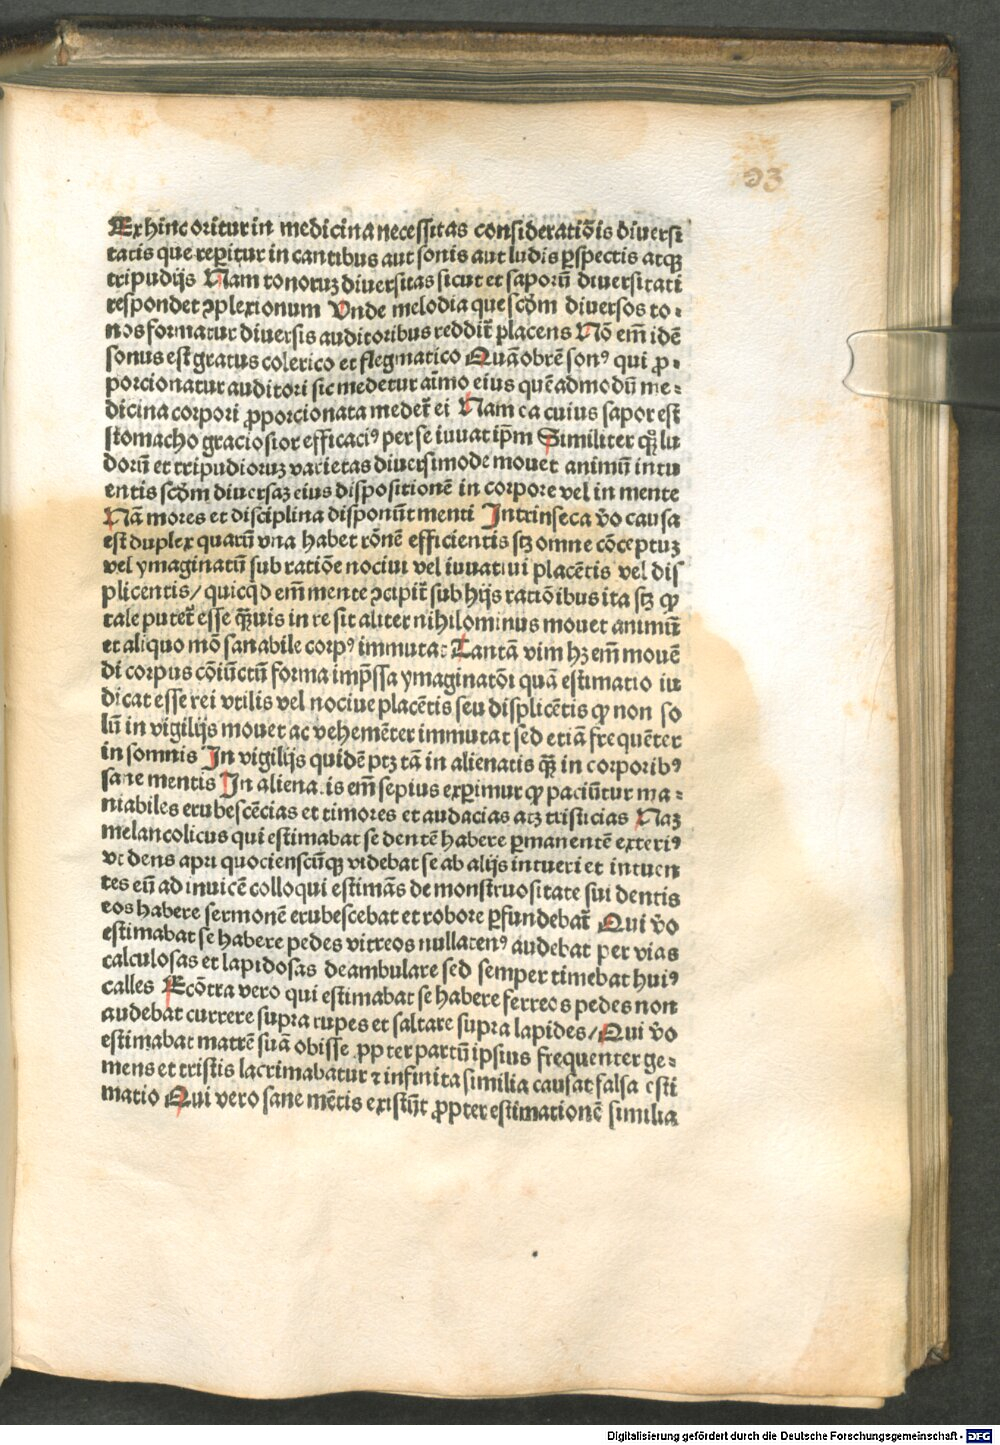 93
Exhinc oritur in medicina necessitas consideratiõis diuersi
tatis que reperitur in cantibus aut sonis aut ludis ꝑspectis atqꝫ
tripudijs Nam tonoruꝫ diuersitas sicut et saporũ diuersitati
respondet ꝯplexionum Unde melodia que scďm diuersos to⸗
nos formatur diuersis auditoribus reddit̃ placens Nõ em̃ idẽ
sonus est gratus colerico et flegmatico Quãobrẽ sonꝰ qui ꝓ⸗
porcionatur auditori sic medetur aĩmo eius quẽadmodũ me⸗
dicina corpori ꝓporcionata medet̃ ei Nam ea cuius sapor est
stomacho graciosior efficaciꝰ per se iuuat ip̃m Similiter qꝫ̃ lu
dorũ et tripudioruꝫ varietas diuersimode mouet animũ intu
entis scďm diuersaꝫ eius dispositionẽ in corpore vel in mente
Nã mores et disciplina disponũt menti Intrinseca v̾o causa
est duplex quarũ vna habet rõnẽ efficientis stꝫ omne cõceptuꝫ
vel ymaginatũ sub ratiõe nociui vel iuuatiui placẽtis vel dis
plicentis/ quicqͥd em̃ mente ꝯcipit̃ sub hijs ratiõibus ita stꝫ ꝙ
tale putet̃ esse qꝫ̃uis in re sit aliter nihilominus mouet animũ
et aliquo mõ sanabile corpꝰ immutat Tantã vim hꝫ em̃ mouẽ
di corpus cõiũctũ forma imp̃ssa ymaginatõi quã estimatio iu
dicat esse rei vtilis vel nociue placẽtis seu displicẽtis ꝙ non so
lũ in vigilijs mouet ac vehemẽter immutat sed etiã frequẽter
in somnis In vigilijs quidẽ ptꝫ tã in alienatis qꝫ̃ in corporibꝰ
sane mentis In alienatis em̃ sepius exꝑimur ꝙ paciũtur ma⸗
niabiles erubescẽcias et timores et audacias atꝫ tristicias Naꝫ
melancolicus qui estimabat se dentẽ habere ꝑmanentẽ exteriꝰ
vt dens apri quocienscũqꝫ videbat se ab alijs intueri et intuen
tes eũ ad inuicẽ colloqui estimãs de monstruositate sui dentis
eos habere sermonẽ erubescebat et robore ꝑfundebat̃ Qui v̾o
estimabat se habere pedes vitreos nullatenꝰ audebat per vias
calculosas et lapidosas deambulare sed semper timebat huiꝰ
calles Ecõtra vero qui estimabat se habere ferreos pedes non
audebat currere supra rupes et saltare supra lapides/ Qui v̾o
estimabat matrẽ suã obisse ꝓpter partũ ipsius frequenter ge⸗
mens et tristis lacrimabatur ⁊ infinita similia causat falsa esti
matio Qui vero sane mẽtis existũt ꝓpter estimationẽ similia
Digitalisierung gefördert durch die Deutsche Forschungsgemeinschaft - DFG